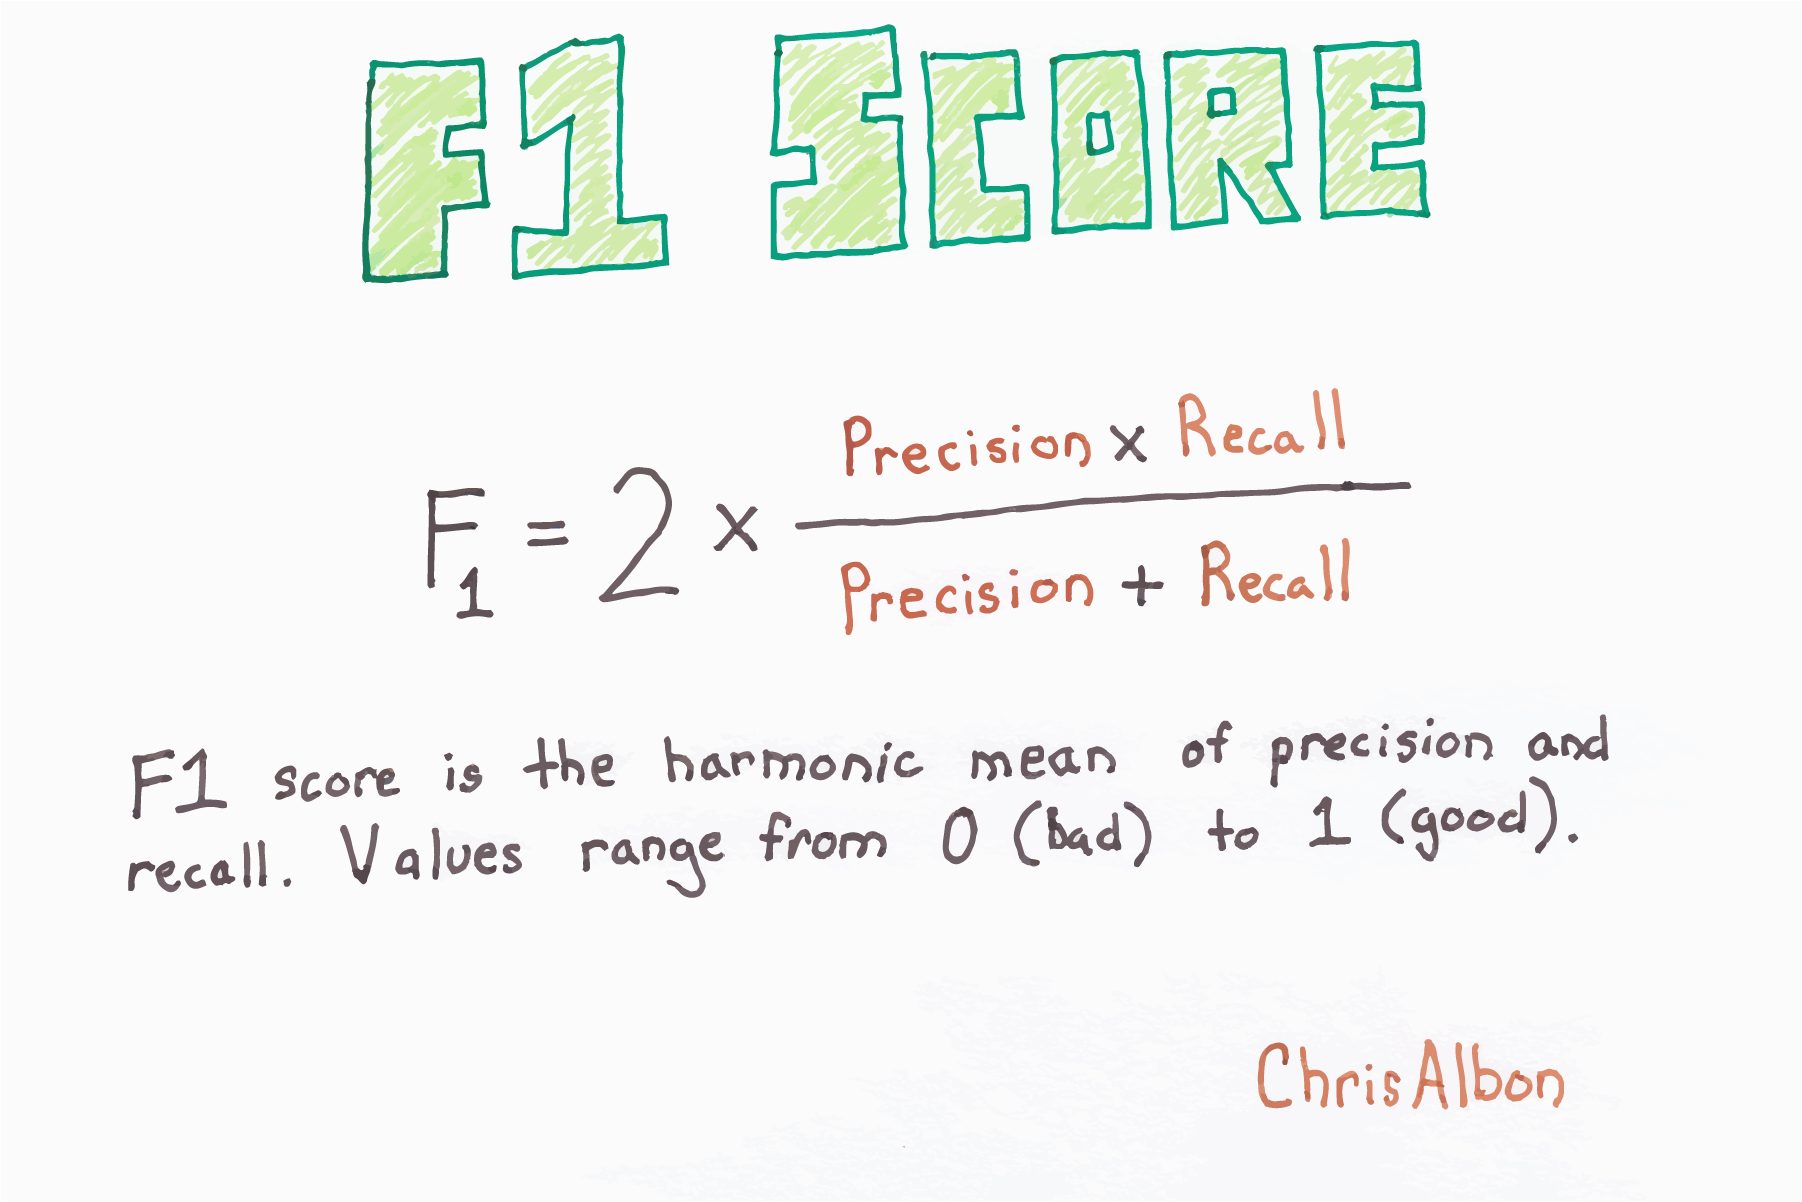 F1 SCORE
Precision x Recall
F1 = 2 x
Precision + Recall
F1 score is the harmonic mean of precision and
recall. Values range from 0 (bad) to 1 (good).
Chris Albon